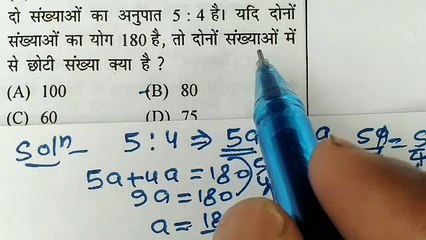 दो संख्याओं का अनुपात 5 : 4 है। यदि दोनों
संख्याओं का योग 180 है, तो दोनों संख्याओं में
से छोटी संख्या क्या है ?
(A) 100 (B) 80
(C) 60 (D) 75
Soln 5 : 4 ⇒ 5a a
5a+4a = 180
9a = 180
a = 18